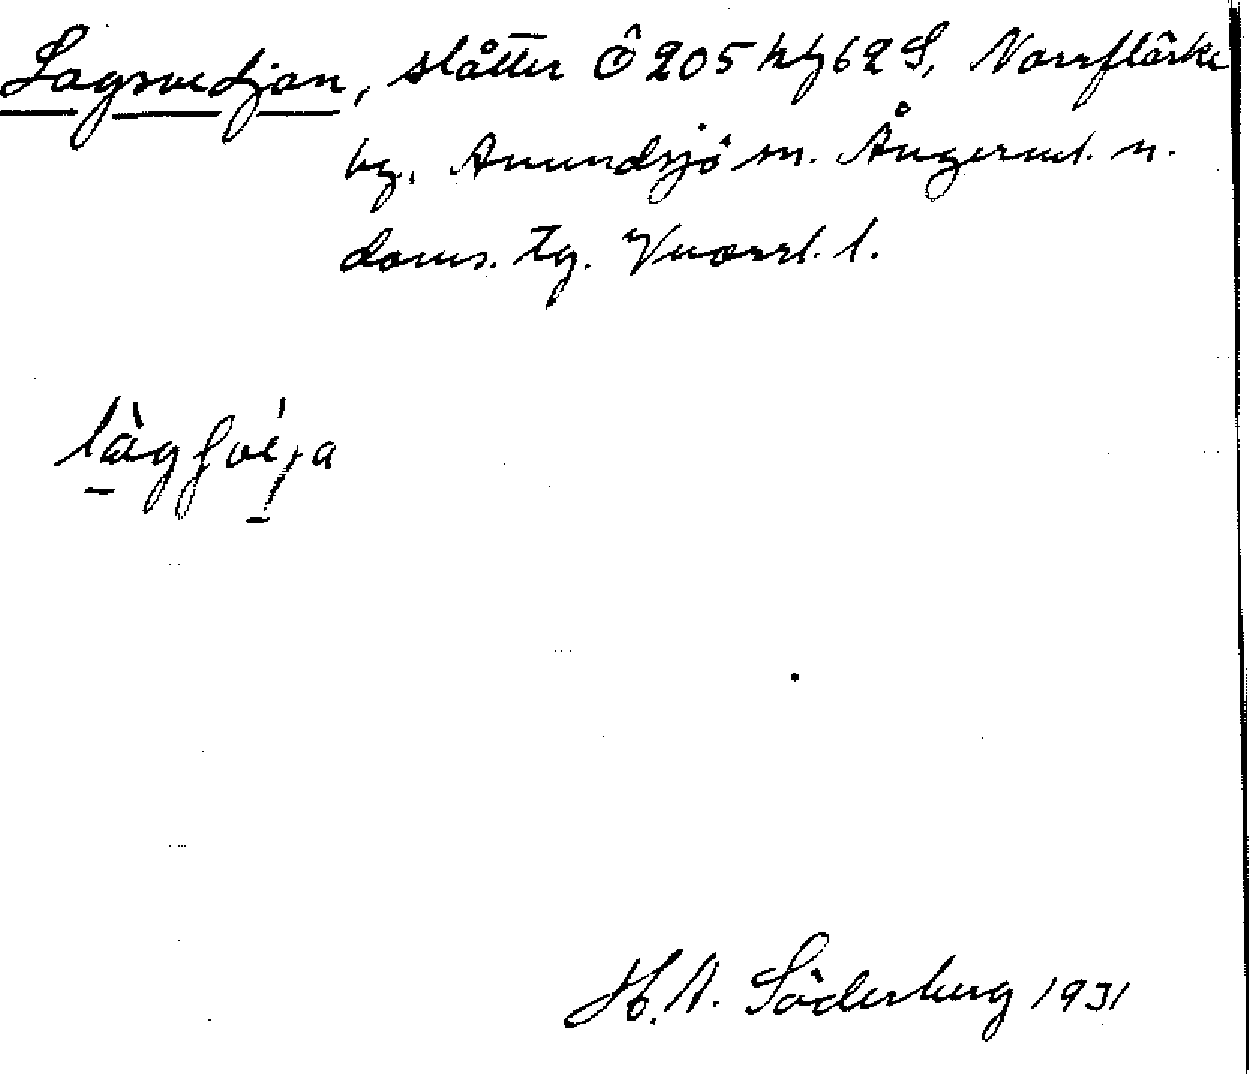 Lagsvedjan, slåtter Ö 205 htg 62 S, Norrflärke
by, Anundsjö sn. Ångerml. n.
doms. tg. Vnorrl. l.
làgsvé̱ja
H. A. Söderberg 1931